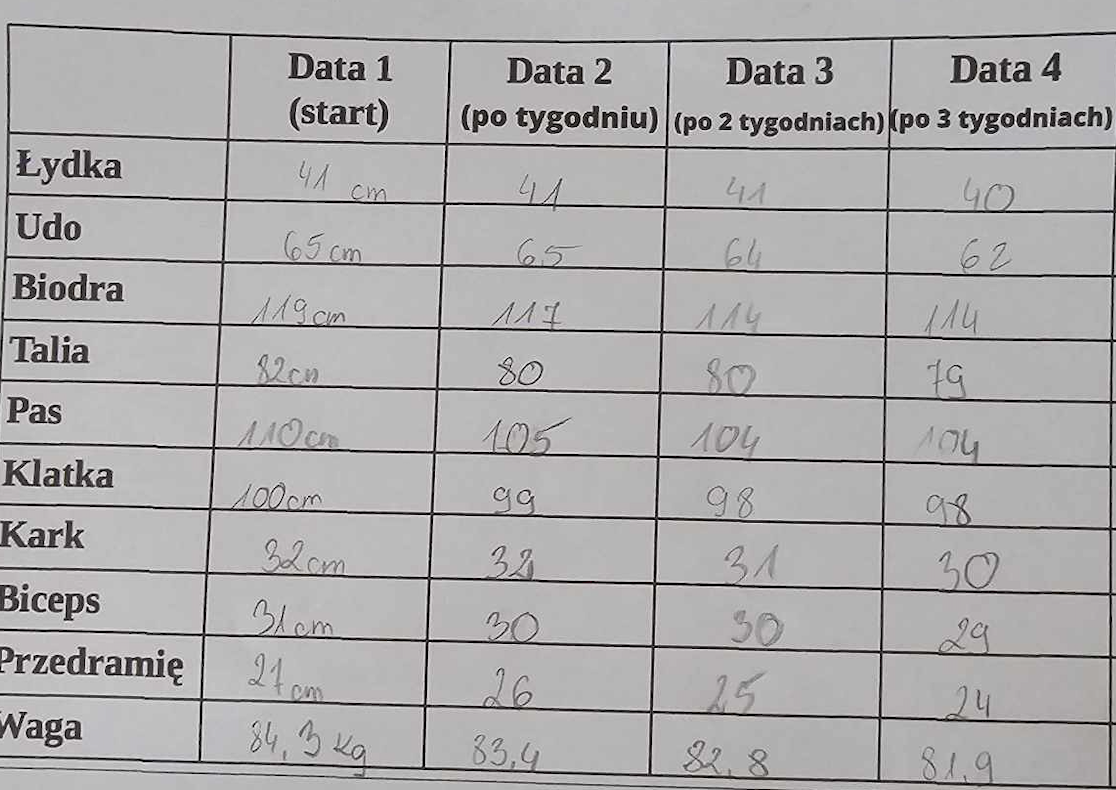 Data 1 (start) Data 2 (po tygodniu) Data 3 (po 2 tygodniach) Data 4 (po 3 tygodniach)
Łydka 41 cm 41 41 40
Udo 65 cm 65 64 62
Biodra 119 cm 117 114 114
Talia 82 cm 80 80 79
Pas 110 cm 105 104 104
Klatka 100 cm 99 98 98
Kark 32 cm 32 31 30
Biceps 31 cm 30 30 29
Przedramię 27 cm 26 25 24
Waga 84,3 kg 83,4 82,8 81,9